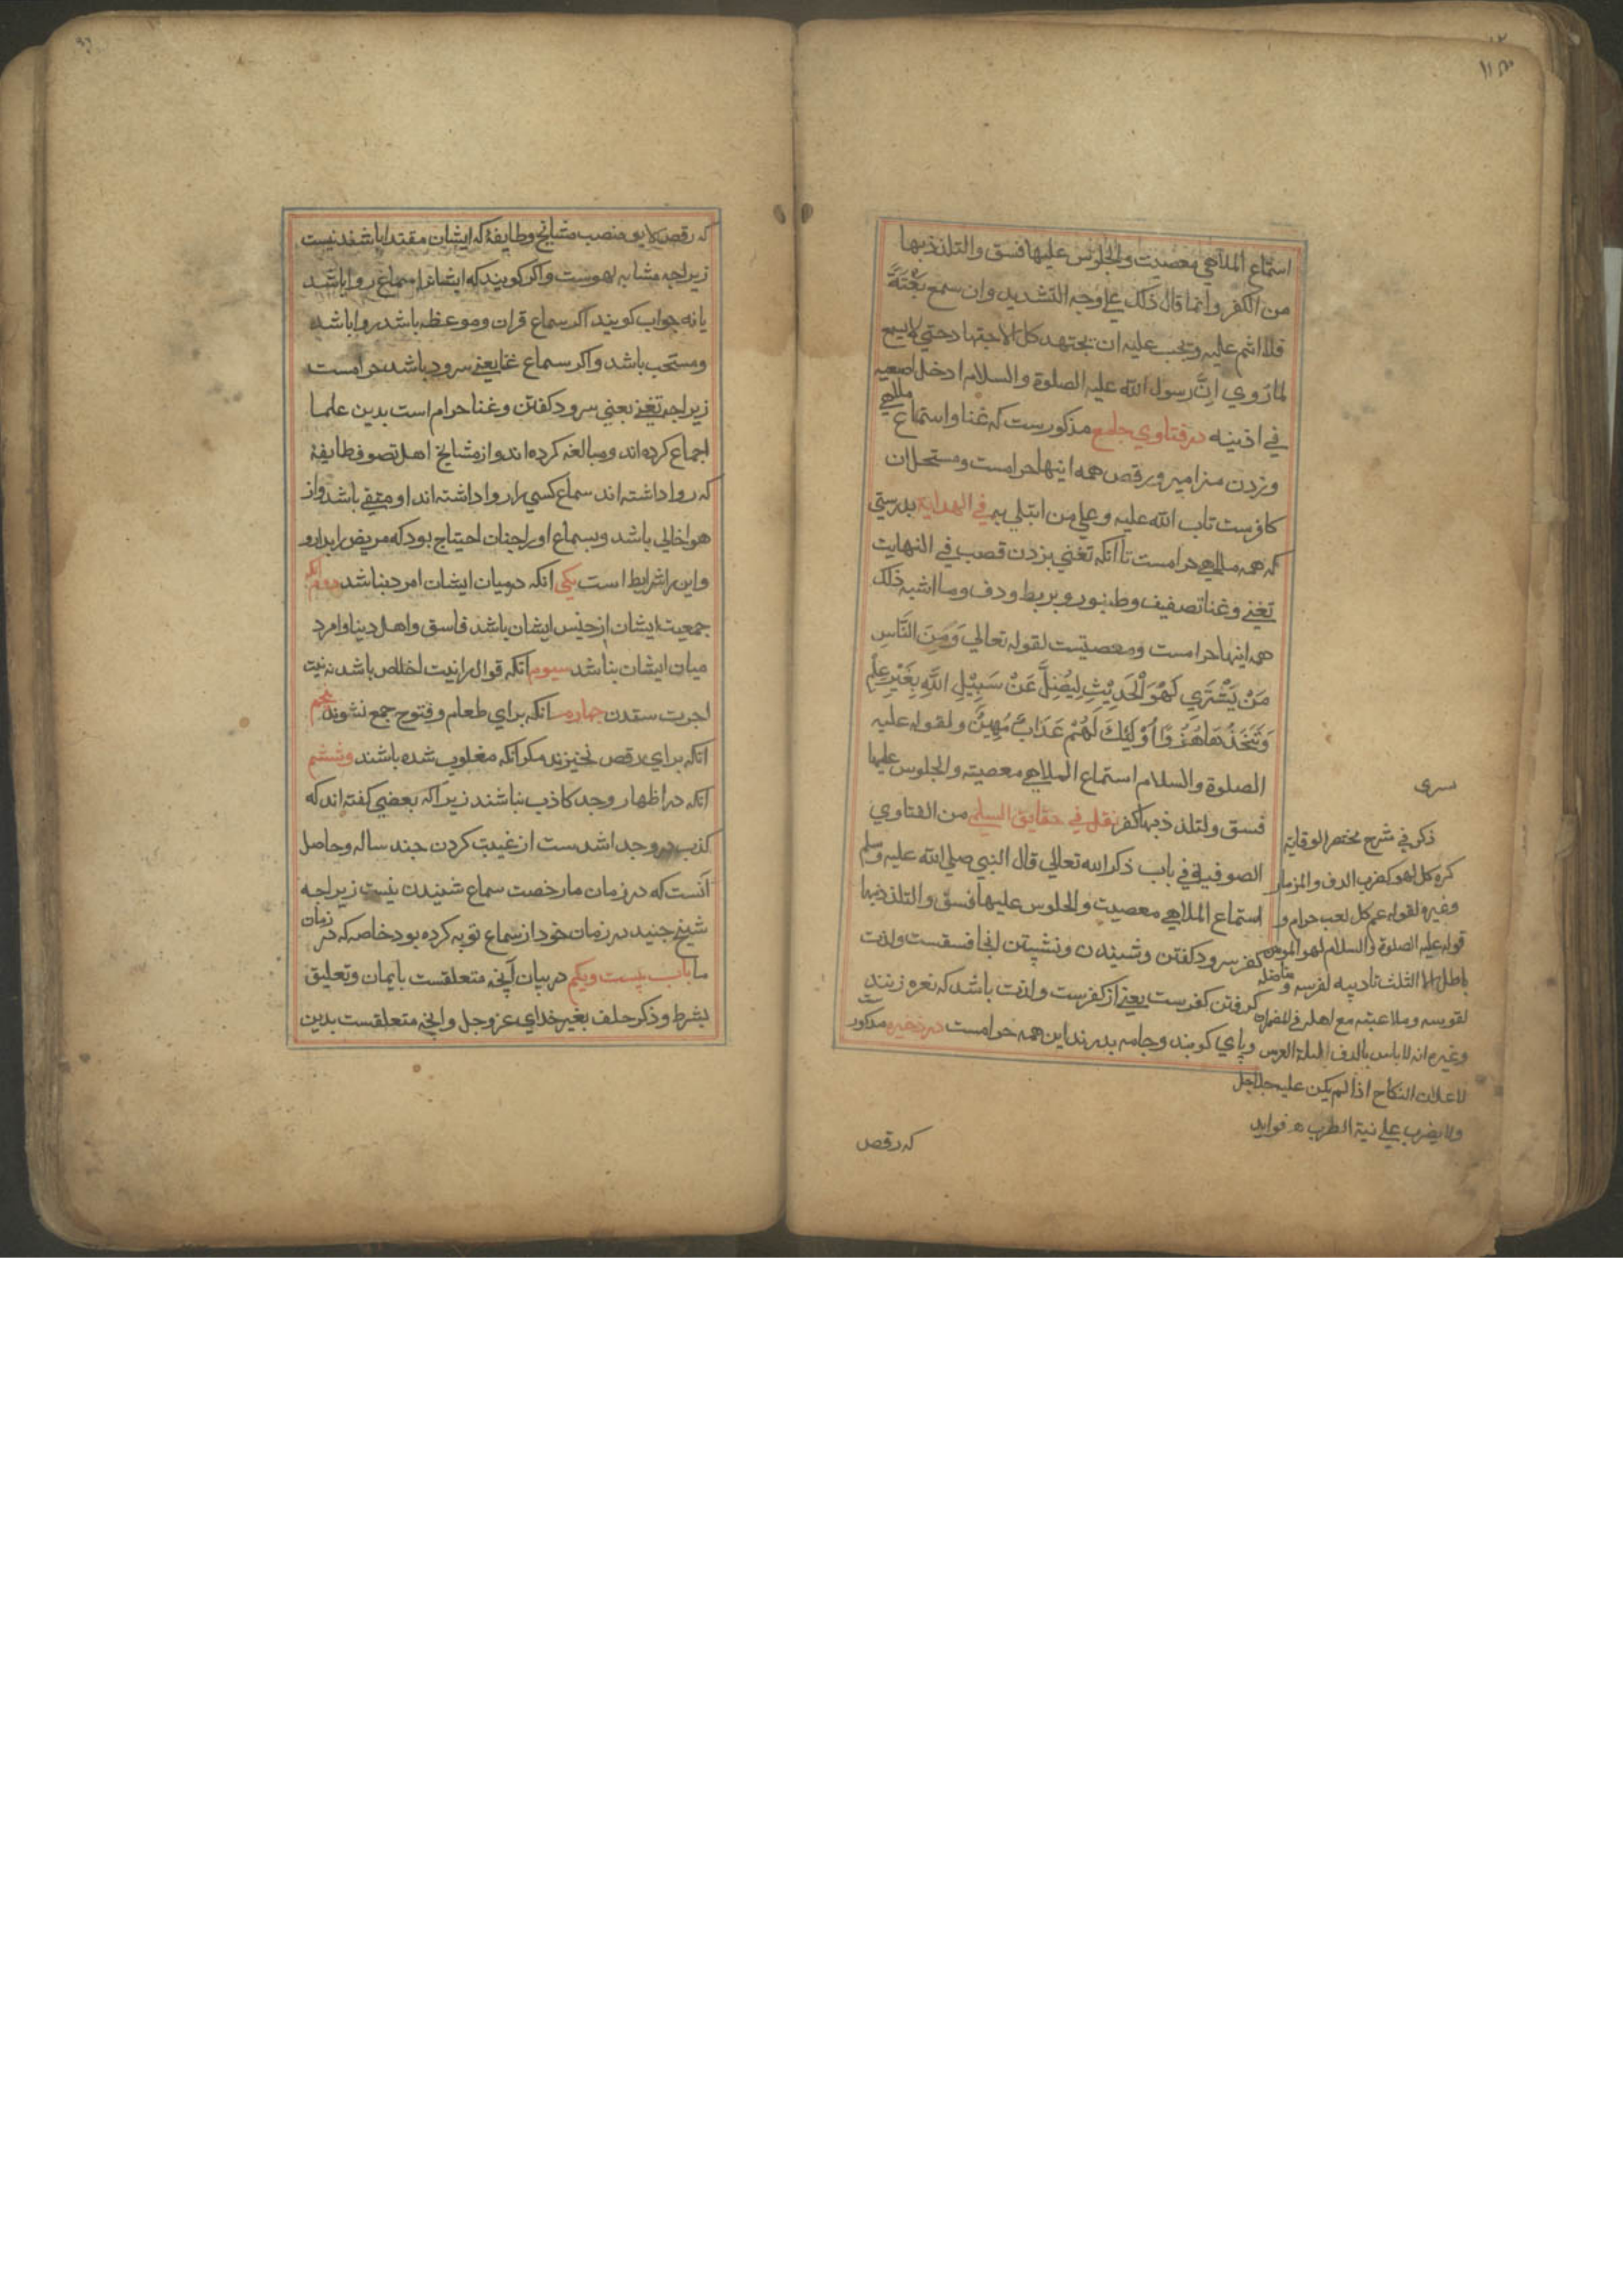 استماع الملاهي معصيت والجلوس عليها فسق والتلذذ بها
من الكفر وانما قال ذلك علي وجه التشديد وان سمع بغتةً
فلا اثم عليه ويجب عليه ان يجتهد كل الاجتهاد حتي لا يسمع
لما رُوي انَّ رسول الله عليه الصلوة والسلام ادخل اصبعيه
في اذنيه در فتاوي جامع مذكورست كه غنا واستماع ملاهي
وزدن مزامير ورقص همه اينها حرامست ومستحلان
كافرست تاب الله عليه وعلي من ابتلي به في الهدايه بدرستي
كه همه ملاهي حرامست تا آنكه تغني بزدن قصب في النهايت
تغني وغنا تصفيف وطنبور وبربط ودف وما اشبه ذلك
همه اينها حرامست ومعصيتست لقوله تعالي وَمِنَ النَّاسِ
مَنْ يَشْتَرِي لَهْوَ الْحَدِيْثِ لِيُضِلَّ عَنْ سَبِيْلِ اللهِ بِغَيْرِ عِلْمٍ
وَيَتَّخِذُهَا هُزُوًا اُوْلٰئِكَ لَهُمْ عَذَابٌ مُهِيْنٌ ولقوله عليه
الصلوة والسلام استماع الملاهي معصيته والجلوس عليها
فسق ولتلذذ بها كفر نقل في حقايق السلمي من الفتاوي
الصوفية في باب ذكر الله تعالي قال النبي صلي الله عليه وسلم
استماع الملاهي معصيت والجلوس عليها فسق والتلذذ بها
كفر سرود كفتن وشنيدن ونشستن انجا فسقست ولذت
كرفتن كفرست يعني از كفرست ولذت باشد كه نعره زنند
وپاي كوبند وجامه بدرند اين همه حرامست در ذخيره مذكورست
سرى
ذكر في شرح مختصر الوقاية
كره كل لهو كضرب الدف والمزمار
وغيره لقوله عم كل لعب حرام و
قوله عليه الصلوة والسلام لهو المومن
باطل الا الثلث تاديبه لفرسه ومناضله
لقوسه وملاعبته مع اهله في المضمرات
وغيره انه لا باس بالدف ليلة العرس
لاعلان النكاح اذا لم يكن عليه جلاجل
ولا يضرب علي نية الطرب ه فوايد
كه رقص
كه رقص لايق منصب مشايخ وطايفهٔ كه ايشان مقتدا باشند نيست
زيراچه مشابه لهوست واكر كويند كه ايشانرا سماع روا باشد
يا نه جواب كويند اكر سماع قران وموعظه باشد روا باشد
ومستحب باشد واكر سماع غنا يعني سرود باشد حرامست
زيراچه تغني يعني سرود كفتن وغنا حرام است بدين علما
اجماع كرده اند ومبالغه كرده اند واز مشايخ اهل تصوف طايفهٔ
كه روا داشته اند سماع كسي را روا داشته اند او متقي باشد واز
هوا خالي باشد وبسماع او را چنان احتياج بود كه مريض را بدارو
واين را شرايط است يكي انكه درميان ايشان امرد نباشد دوم آنكه
جمعيت ايشان از جنس ايشان باشد فاسق واهل دنيا وامرد
ميان ايشان نباشد سيوم آنكه قوال را نيت اخلاص باشد نه نيت
اجرت ستدن چهارم انكه براي طعام وفتوح جمع نشوند پنجم
آنكه براي رقص نخيزند مكر آنكه مغلوب شده باشند وششم
آنكه در اظهار وجد كاذب نباشند زيرا كه بعضي كفته اند كه
كذب در وجد اشدست از غيبت كردن چند ساله وحاصل
آنست كه در زمان ما رخصت سماع شنيدن نيست زيراچه
شيخ جنيد در زمان خود از سماع توبه كرده بود خاصه كه در زمان
ما باب بيست ويكم در بيان آنچه متعلقست بايمان وتعليق
بشرط وذكر حلف بغير خداي عز وجل وانچه متعلقست بدين